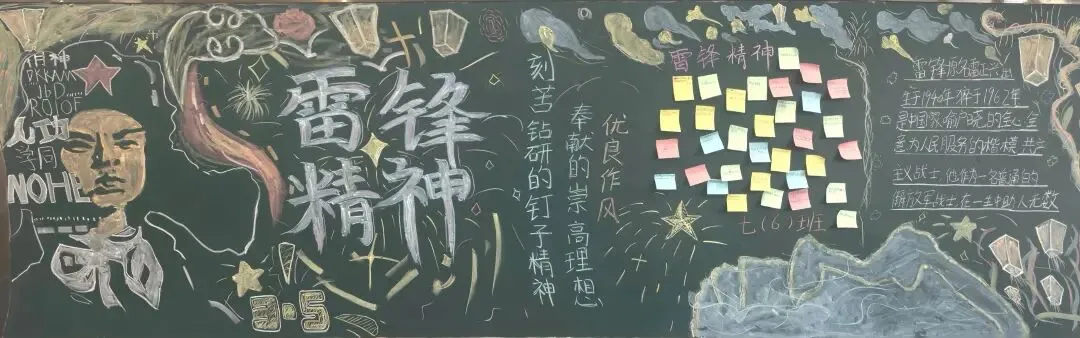 雷锋
精神
3·5
刻苦钻研的钉子精神
奉献的崇高理想
优良作风
雷锋精神
七(6)班
雷锋原名雷正兴出
生于1940年牺于1962年
是中国家喻户晓的全心全
意为人民服务的楷模共产
主义战士他作为一名普通的
解放军战士在一生中助人无数